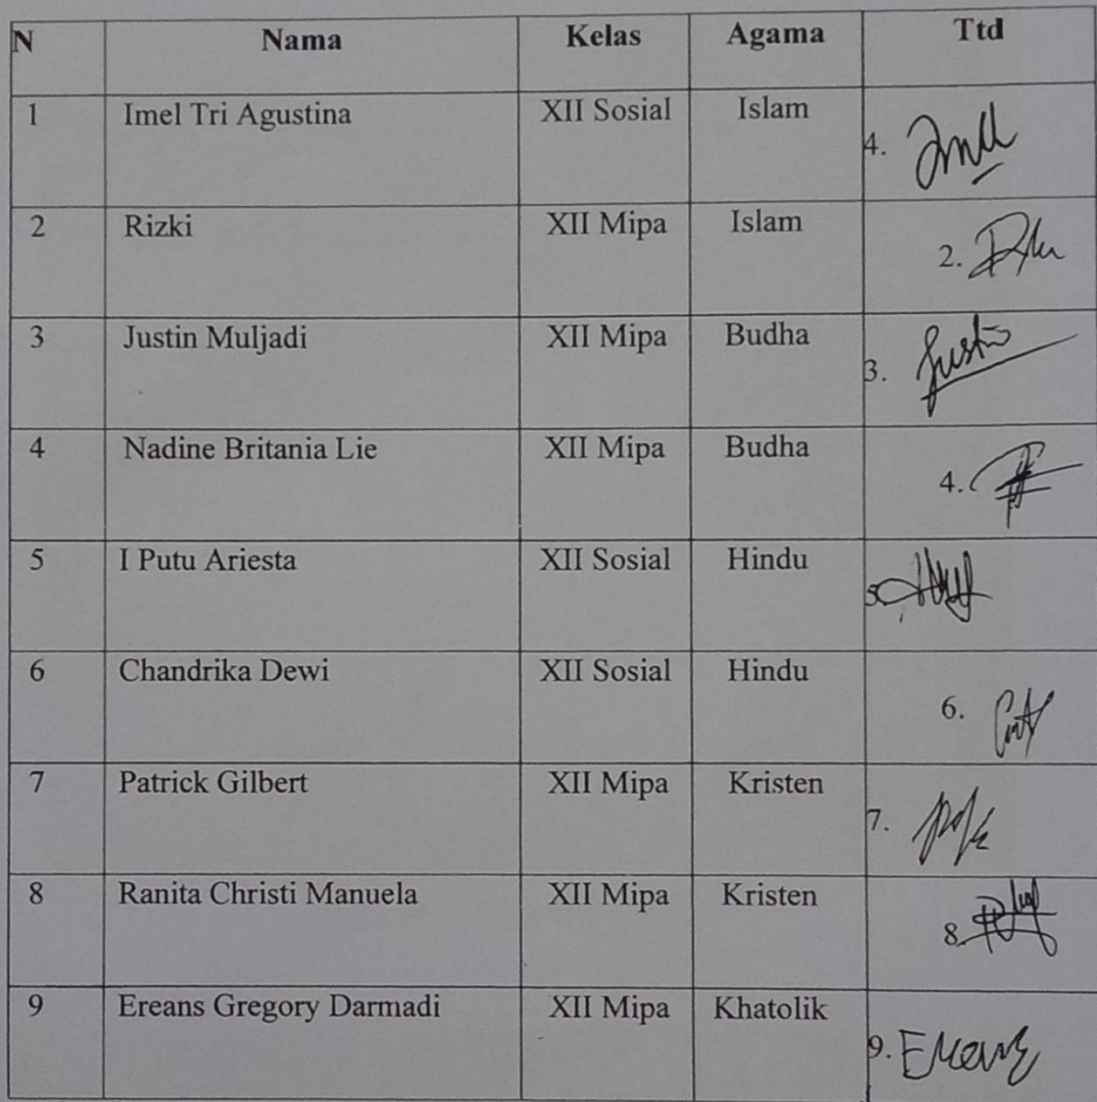 N Nama Kelas Agama Ttd
1 Imel Tri Agustina XII Sosial Islam 4.
2 Rizki XII Mipa Islam 2.
3 Justin Muljadi XII Mipa Budha 3. Justin
4 Nadine Britania Lie XII Mipa Budha 4.
5 I Putu Ariesta XII Sosial Hindu 5.
6 Chandrika Dewi XII Sosial Hindu 6.
7 Patrick Gilbert XII Mipa Kristen 7.
8 Ranita Christi Manuela XII Mipa Kristen 8.
9 Ereans Gregory Darmadi XII Mipa Khatolik 9.